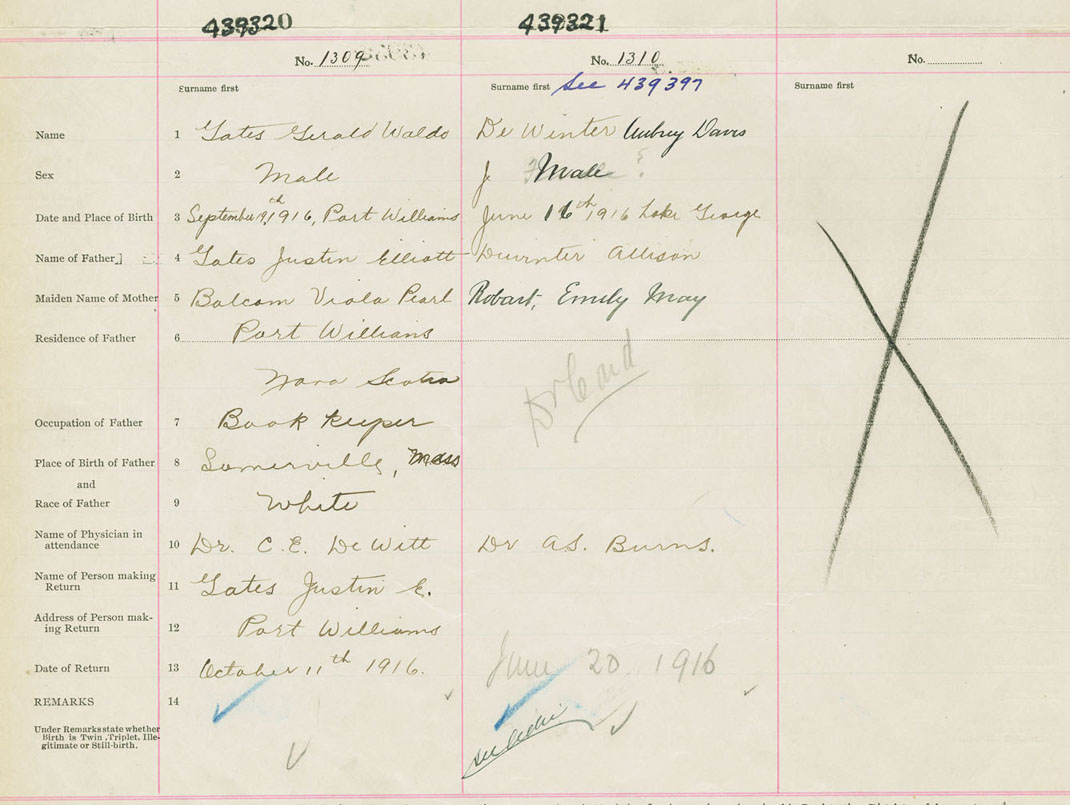 439320 439321
No. 1309 No. 1310 No.
Surname first Surname first See 439397 Surname first
Name 1 Gates Gerald Waldo De Winter Aubrey Davis
Sex 2 Male J Male ?
Date and Place of Birth 3 September 19th, 1916, Port Williams June 16th 1916 Lake George
Name of Father 4 Gates Justin Elliott Dewinter Allison
Maiden Name of Mother 5 Balcom Viola Pearl Robart, Emily May
Residence of Father 6 Port Williams
Nova Scotia
Dr Card
Occupation of Father 7 Book keeper
Place of Birth of Father 8 Somerville, Mass
and
Race of Father 9 White
Name of Physician in
attendance 10 Dr. C. E. De Witt Dr A.S. Burns.
Name of Person making
Return 11 Gates Justin E.
Address of Person mak-
ing Return 12 Port Williams
Date of Return 13 October 11th 1916. June 20 1916
REMARKS 14
Under Remarks state whether
Birth is Twin, Triplet, Ille-
gitimate or Still-birth.
see